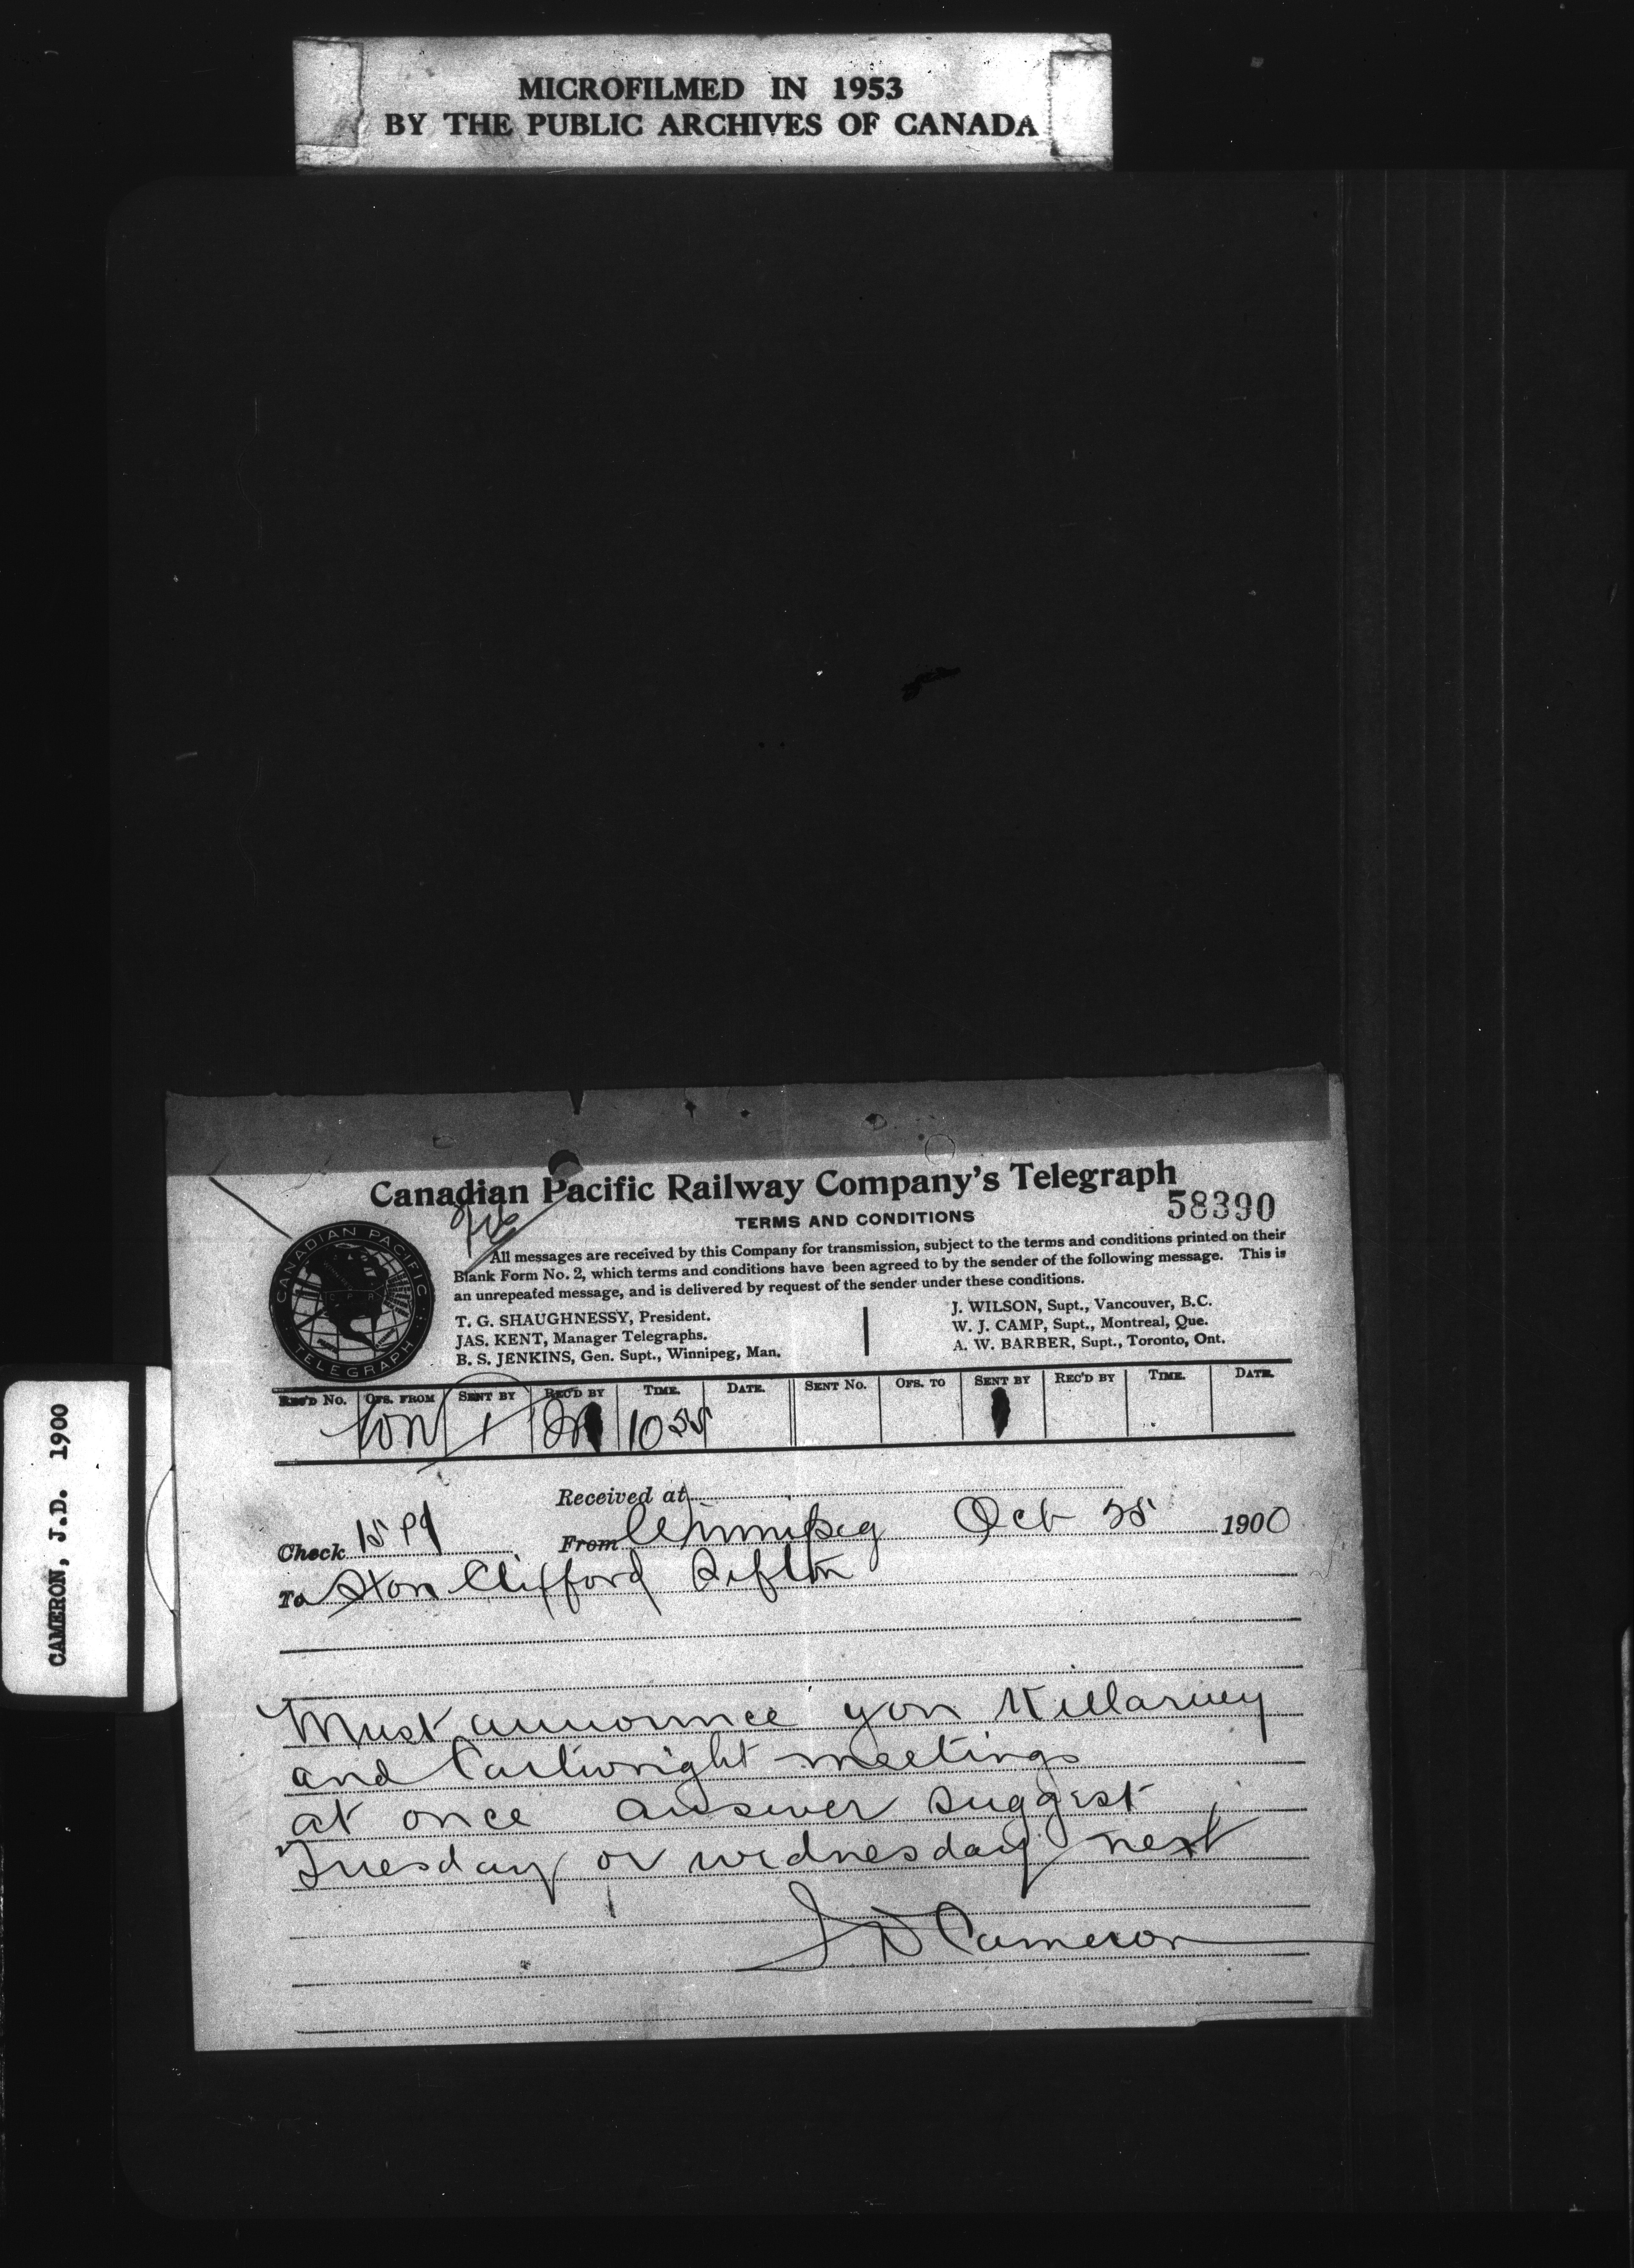 MICROFILMED IN 1953
BY THE PUBLIC ARCHIVES OF CANADA
CAMERON, J.D. 1900
Canadian Pacific Railway Company's Telegraph
58390
TERMS AND CONDITIONS
CANADIAN PACIFIC TELEGRAPH
All messages are received by this Company for transmission, subject to the terms and conditions printed on their
Blank Form No. 2, which terms and conditions have been agreed to by the sender of the following message. This is
an unrepeated message, and is delivered by request of the sender under these conditions.
T. G. SHAUGHNESSY, President.
JAS. KENT, Manager Telegraphs.
B. S. JENKINS, Gen. Supt., Winnipeg, Man.
J. WILSON, Supt., Vancouver, B.C.
W. J. CAMP, Supt., Montreal, Que.
A. W. BARBER, Supt., Toronto, Ont.
REC'D No. OFS. FROM SENT BY REC'D BY TIME. DATE. SENT No. OFS. TO SENT BY REC'D BY TIME. DATE.
10 55
Received at
Check 15 Pd From Winnipeg Oct 25 1900
To Hon Clifford Sifton
Must announce you Killarney
and Cartwright meetings
at once answer suggest
Tuesday or wednesday next
J D Cameron